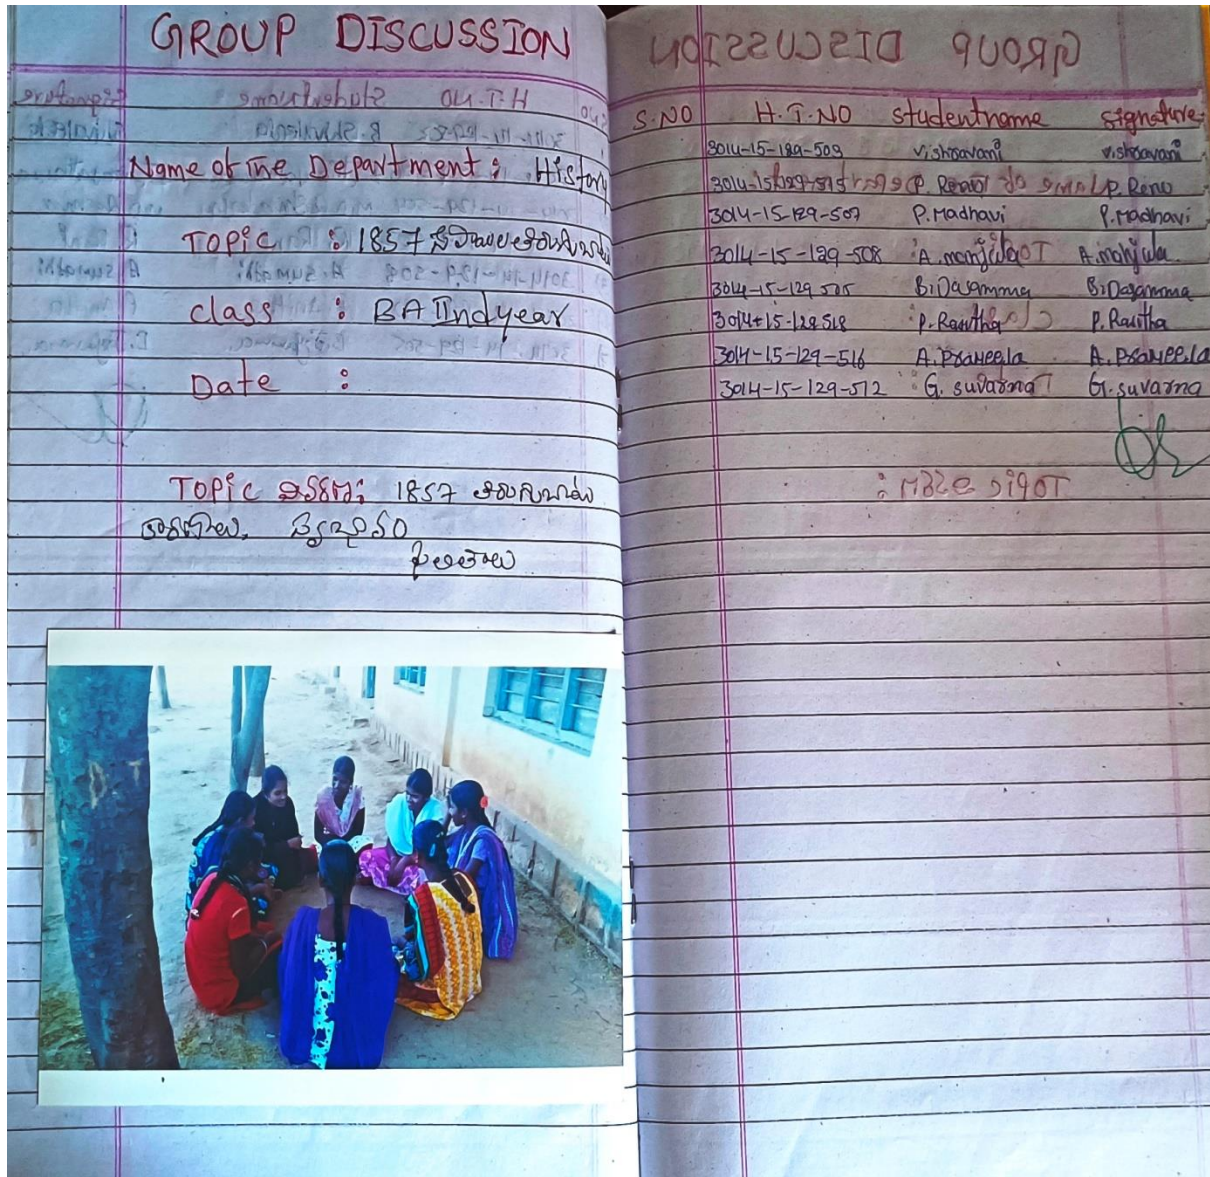 GROUP DISCUSSION
Name of The Department : History
TOPIC : 1857 సిపాయిల తిరుగుబాటు
class : BA IInd year
Date :
TOPIC వివరణ: 1857 తిరుగుబాటు
కారణాలు, స్వభావం
ఫలితాలు
S.NO H.T.NO studentname signature
3014-15-129-509 v.shravani v.shravani
3014-15-129-515 P. Renu
3014-15-129-507 P.Madhavi P.Madhavi
3014-15-129-508 A.manjula A.manjula
3014-15-129-505 B.Dasamma B.Dasamma
3014-15-129-518 P.Rajitha P.Rajitha
3014-15-129-516 A.Prameela A.Prameela
3014-15-129-512 G. suvarna G.suvarna